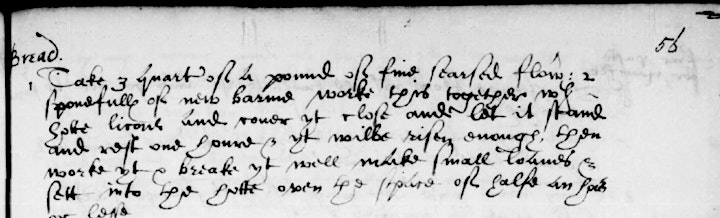 56
Bread.
1 Take 3 quart of a pound of fine searsed flow: 2
sponefulls of new barme worke this together wth
hotte licour and cover yt close and let it stand
and rest one houre & yt wilbe risen enough, then
worke yt & breake yt well make small loaves &
sett into the hotte oven the space of halfe an hour
or lesse